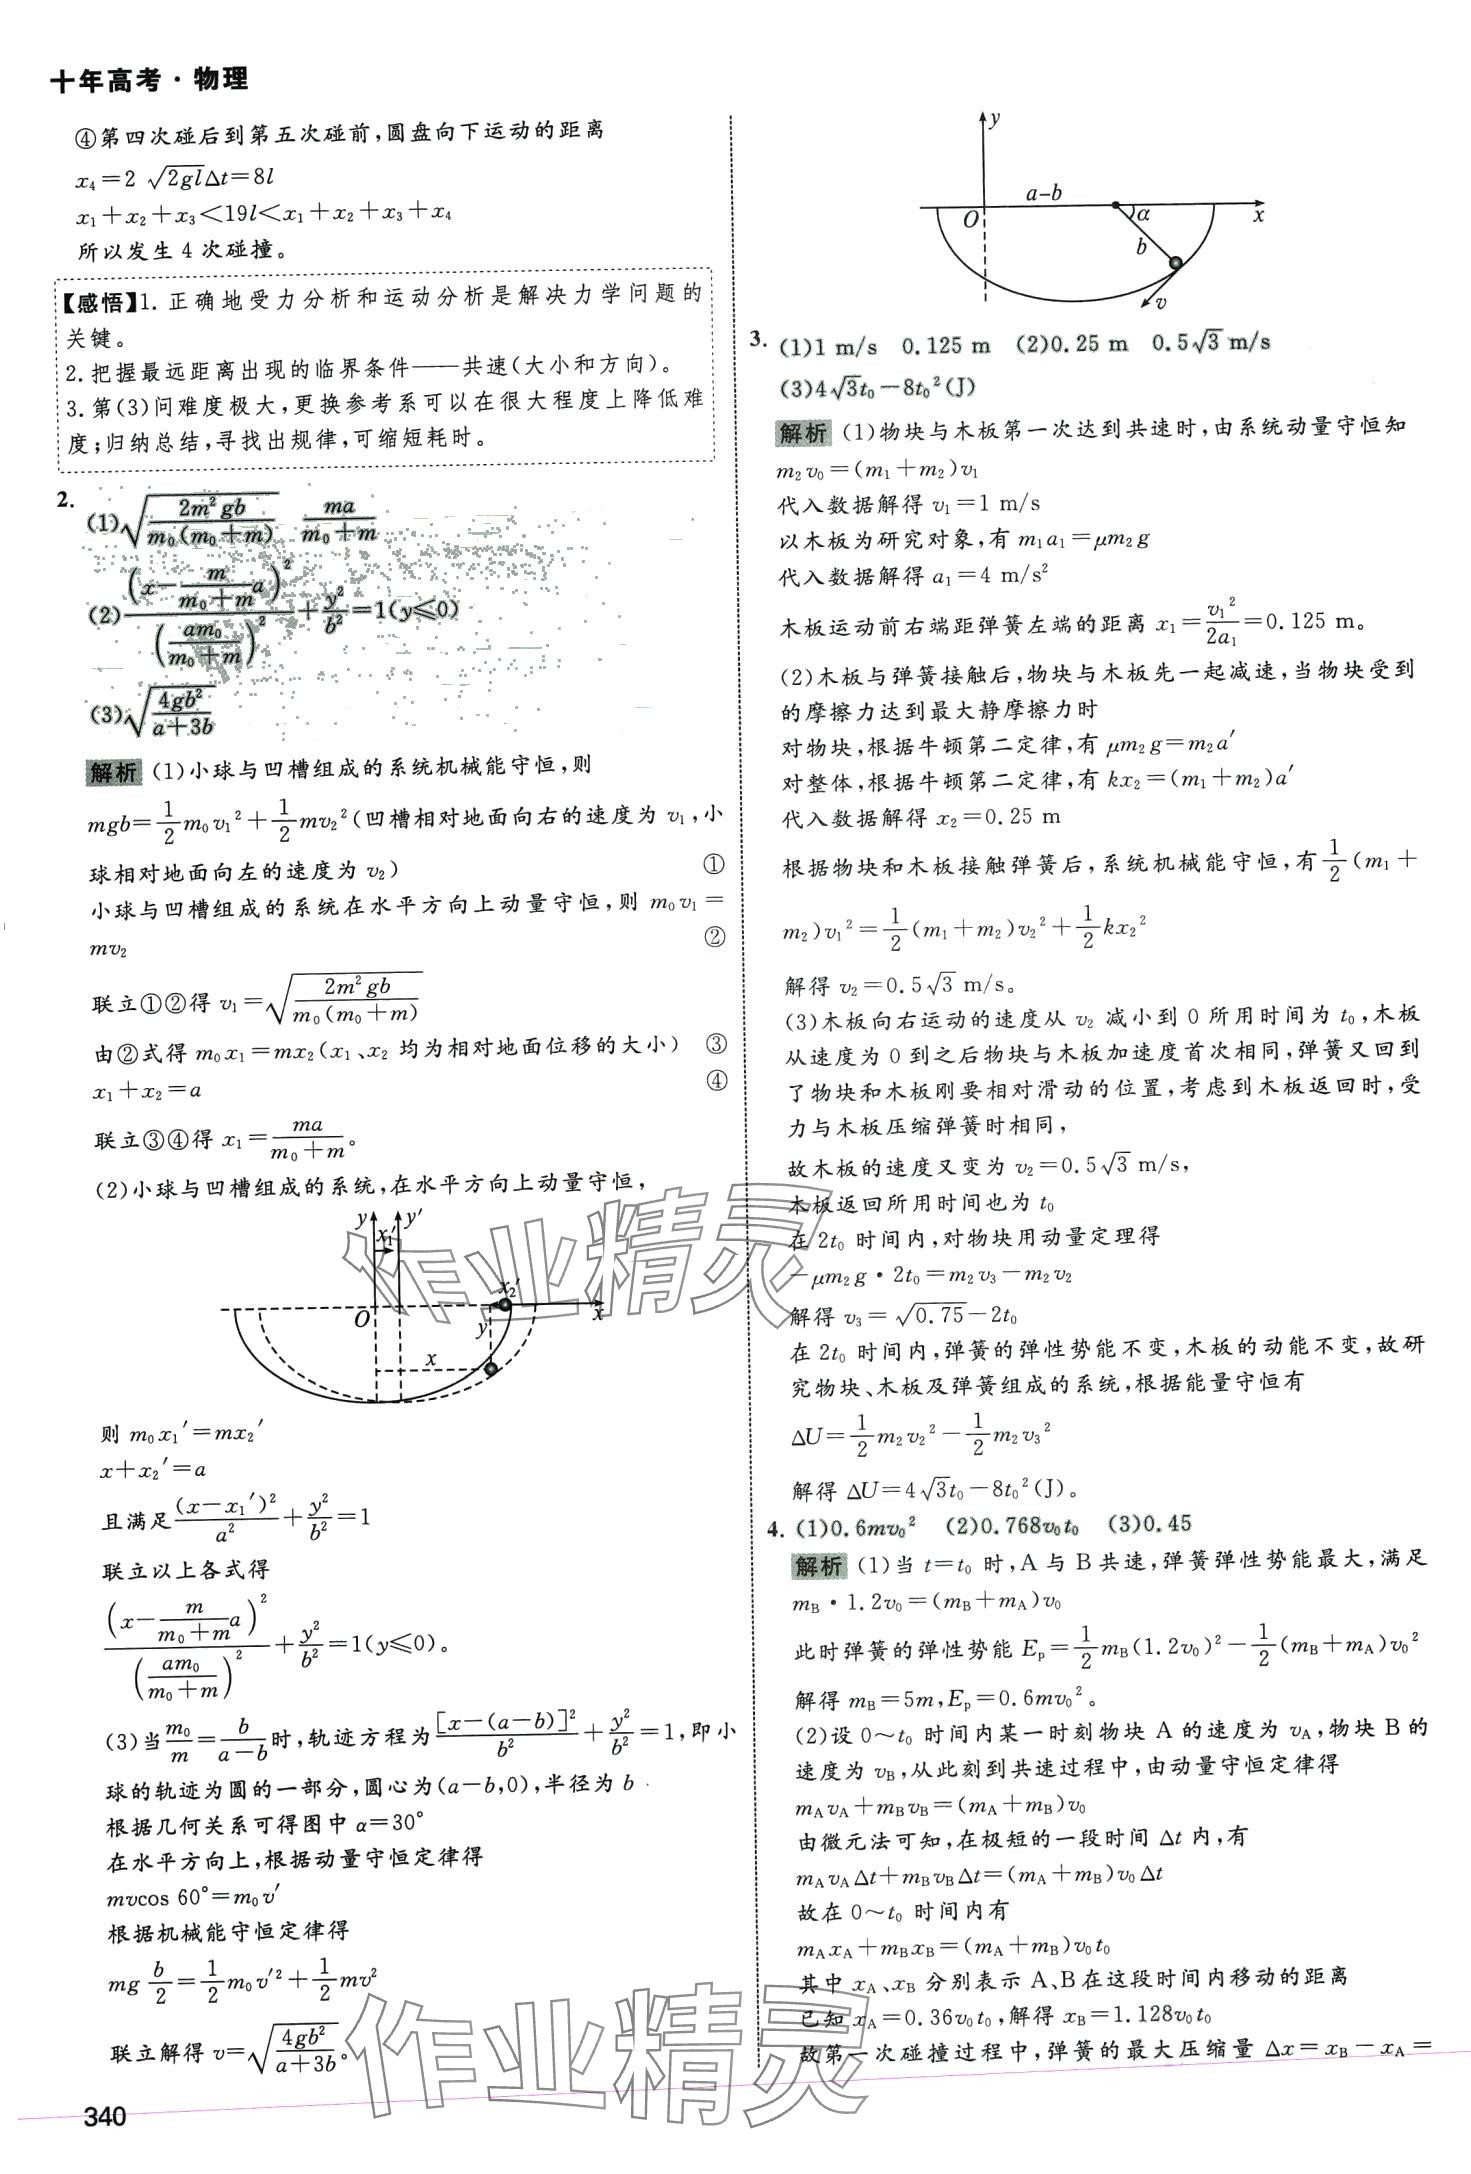 十年高考·物理
④第四次碰后到第五次碰前,圆盘向下运动的距离
x₄=2√(2gl)Δt=8l
x₁+x₂+x₃<19l<x₁+x₂+x₃+x₄
所以发生 4 次碰撞。
【感悟】1. 正确地受力分析和运动分析是解决力学问题的
关键。
2. 把握最远距离出现的临界条件——共速(大小和方向)。
3. 第(3)问难度极大,更换参考系可以在很大程度上降低难
度;归纳总结,寻找出规律,可缩短耗时。
2.
(1)√(2m²gb/(m₀(m₀+m)))  ma/(m₀+m)
(2)(x-m/(m₀+m)a)²/(am₀/(m₀+m))²+y²/b²=1(y≤0)
(3)√(4gb²/(a+3b))
解析 (1)小球与凹槽组成的系统机械能守恒,则
mgb=1/2m₀v₁²+1/2mv₂²(凹槽相对地面向右的速度为 v₁,小
球相对地面向左的速度为 v₂) ①
小球与凹槽组成的系统在水平方向上动量守恒,则 m₀v₁=
mv₂ ②
联立①②得 v₁=√(2m²gb/(m₀(m₀+m)))
由②式得 m₀x₁=mx₂(x₁、x₂ 均为相对地面位移的大小) ③
x₁+x₂=a ④
联立③④得 x₁=ma/(m₀+m)。
(2)小球与凹槽组成的系统,在水平方向上动量守恒,
y y′
x₁′
x₂′
O y x
x
则 m₀x₁′=mx₂′
x+x₂′=a
且满足(x-x₁′)²/a²+y²/b²=1
联立以上各式得
(x-m/(m₀+m)a)²/(am₀/(m₀+m))²+y²/b²=1(y≤0)。
(3)当m₀/m=b/(a-b)时,轨迹方程为[x-(a-b)]²/b²+y²/b²=1,即小
球的轨迹为圆的一部分,圆心为(a-b,0),半径为 b.
根据几何关系可得图中 α=30°
在水平方向上,根据动量守恒定律得
mvcos 60°=m₀v′
根据机械能守恒定律得
mg b/2=1/2m₀v′²+1/2mv²
联立解得 v=√(4gb²/(a+3b))。
340
y
a-b
O α x
b
v
3. (1)1 m/s  0.125 m  (2)0.25 m  0.5√3 m/s
(3)4√3t₀-8t₀²(J)
解析 (1)物块与木板第一次达到共速时,由系统动量守恒知
m₂v₀=(m₁+m₂)v₁
代入数据解得 v₁=1 m/s
以木板为研究对象,有 m₁a₁=μm₂g
代入数据解得 a₁=4 m/s²
木板运动前右端距弹簧左端的距离 x₁=v₁²/2a₁=0.125 m。
(2)木板与弹簧接触后,物块与木板先一起减速,当物块受到
的摩擦力达到最大静摩擦力时
对物块,根据牛顿第二定律,有 μm₂g=m₂a′
对整体,根据牛顿第二定律,有 kx₂=(m₁+m₂)a′
代入数据解得 x₂=0.25 m
根据物块和木板接触弹簧后,系统机械能守恒,有1/2(m₁+
m₂)v₁²=1/2(m₁+m₂)v₂²+1/2kx₂²
解得 v₂=0.5√3 m/s。
(3)木板向右运动的速度从 v₂ 减小到 0 所用时间为 t₀,木板
从速度为 0 到之后物块与木板加速度首次相同,弹簧又回到
了物块和木板刚要相对滑动的位置,考虑到木板返回时,受
力与木板压缩弹簧时相同,
故木板的速度又变为 v₂=0.5√3 m/s,
木板返回所用时间也为 t₀
在 2t₀ 时间内,对物块用动量定理得
-μm₂g·2t₀=m₂v₃-m₂v₂
解得 v₃=√0.75-2t₀
在 2t₀ 时间内,弹簧的弹性势能不变,木板的动能不变,故研
究物块、木板及弹簧组成的系统,根据能量守恒有
ΔU=1/2m₂v₂²-1/2m₂v₃²
解得 ΔU=4√3t₀-8t₀²(J)。
4. (1)0.6mv₀²  (2)0.768v₀t₀  (3)0.45
解析 (1)当 t=t₀ 时,A 与 B 共速,弹簧弹性势能最大,满足
m_B·1.2v₀=(m_B+m_A)v₀
此时弹簧的弹性势能 Eₚ=1/2m_B(1.2v₀)²-1/2(m_B+m_A)v₀²
解得 m_B=5m,Eₚ=0.6mv₀²。
(2)设 0~t₀ 时间内某一时刻物块 A 的速度为 v_A,物块 B 的
速度为 v_B,从此刻到共速过程中,由动量守恒定律得
m_Av_A+m_Bv_B=(m_A+m_B)v₀
由微元法可知,在极短的一段时间 Δt 内,有
m_Av_AΔt+m_Bv_BΔt=(m_A+m_B)v₀Δt
故在 0~t₀ 时间内有
m_Ax_A+m_Bx_B=(m_A+m_B)v₀t₀
其中 x_A、x_B 分别表示 A、B 在这段时间内移动的距离
已知 x_A=0.36v₀t₀,解得 x_B=1.128v₀t₀
故第一次碰撞过程中,弹簧的最大压缩量 Δx=x_B-x_A=
作业精灵
作业精灵